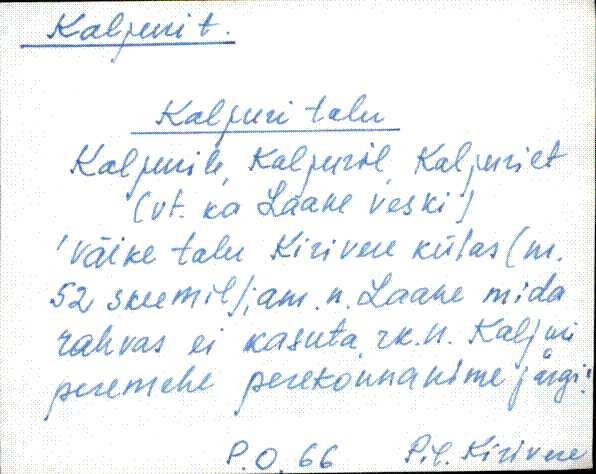 Kalpuri t.
Kalpuri talu
Kalpurile, Kalpuril, Kalpurilt
(vt. ka Laane veski)
'väike talu Kirivere külas (nr.
52 skeemil); am. n. Laane mida
rahvas ei kasuta, rk. n. Kalpuri
peremehe perekonnanime järgi.'
P.O. 66 Pil. Kirivere